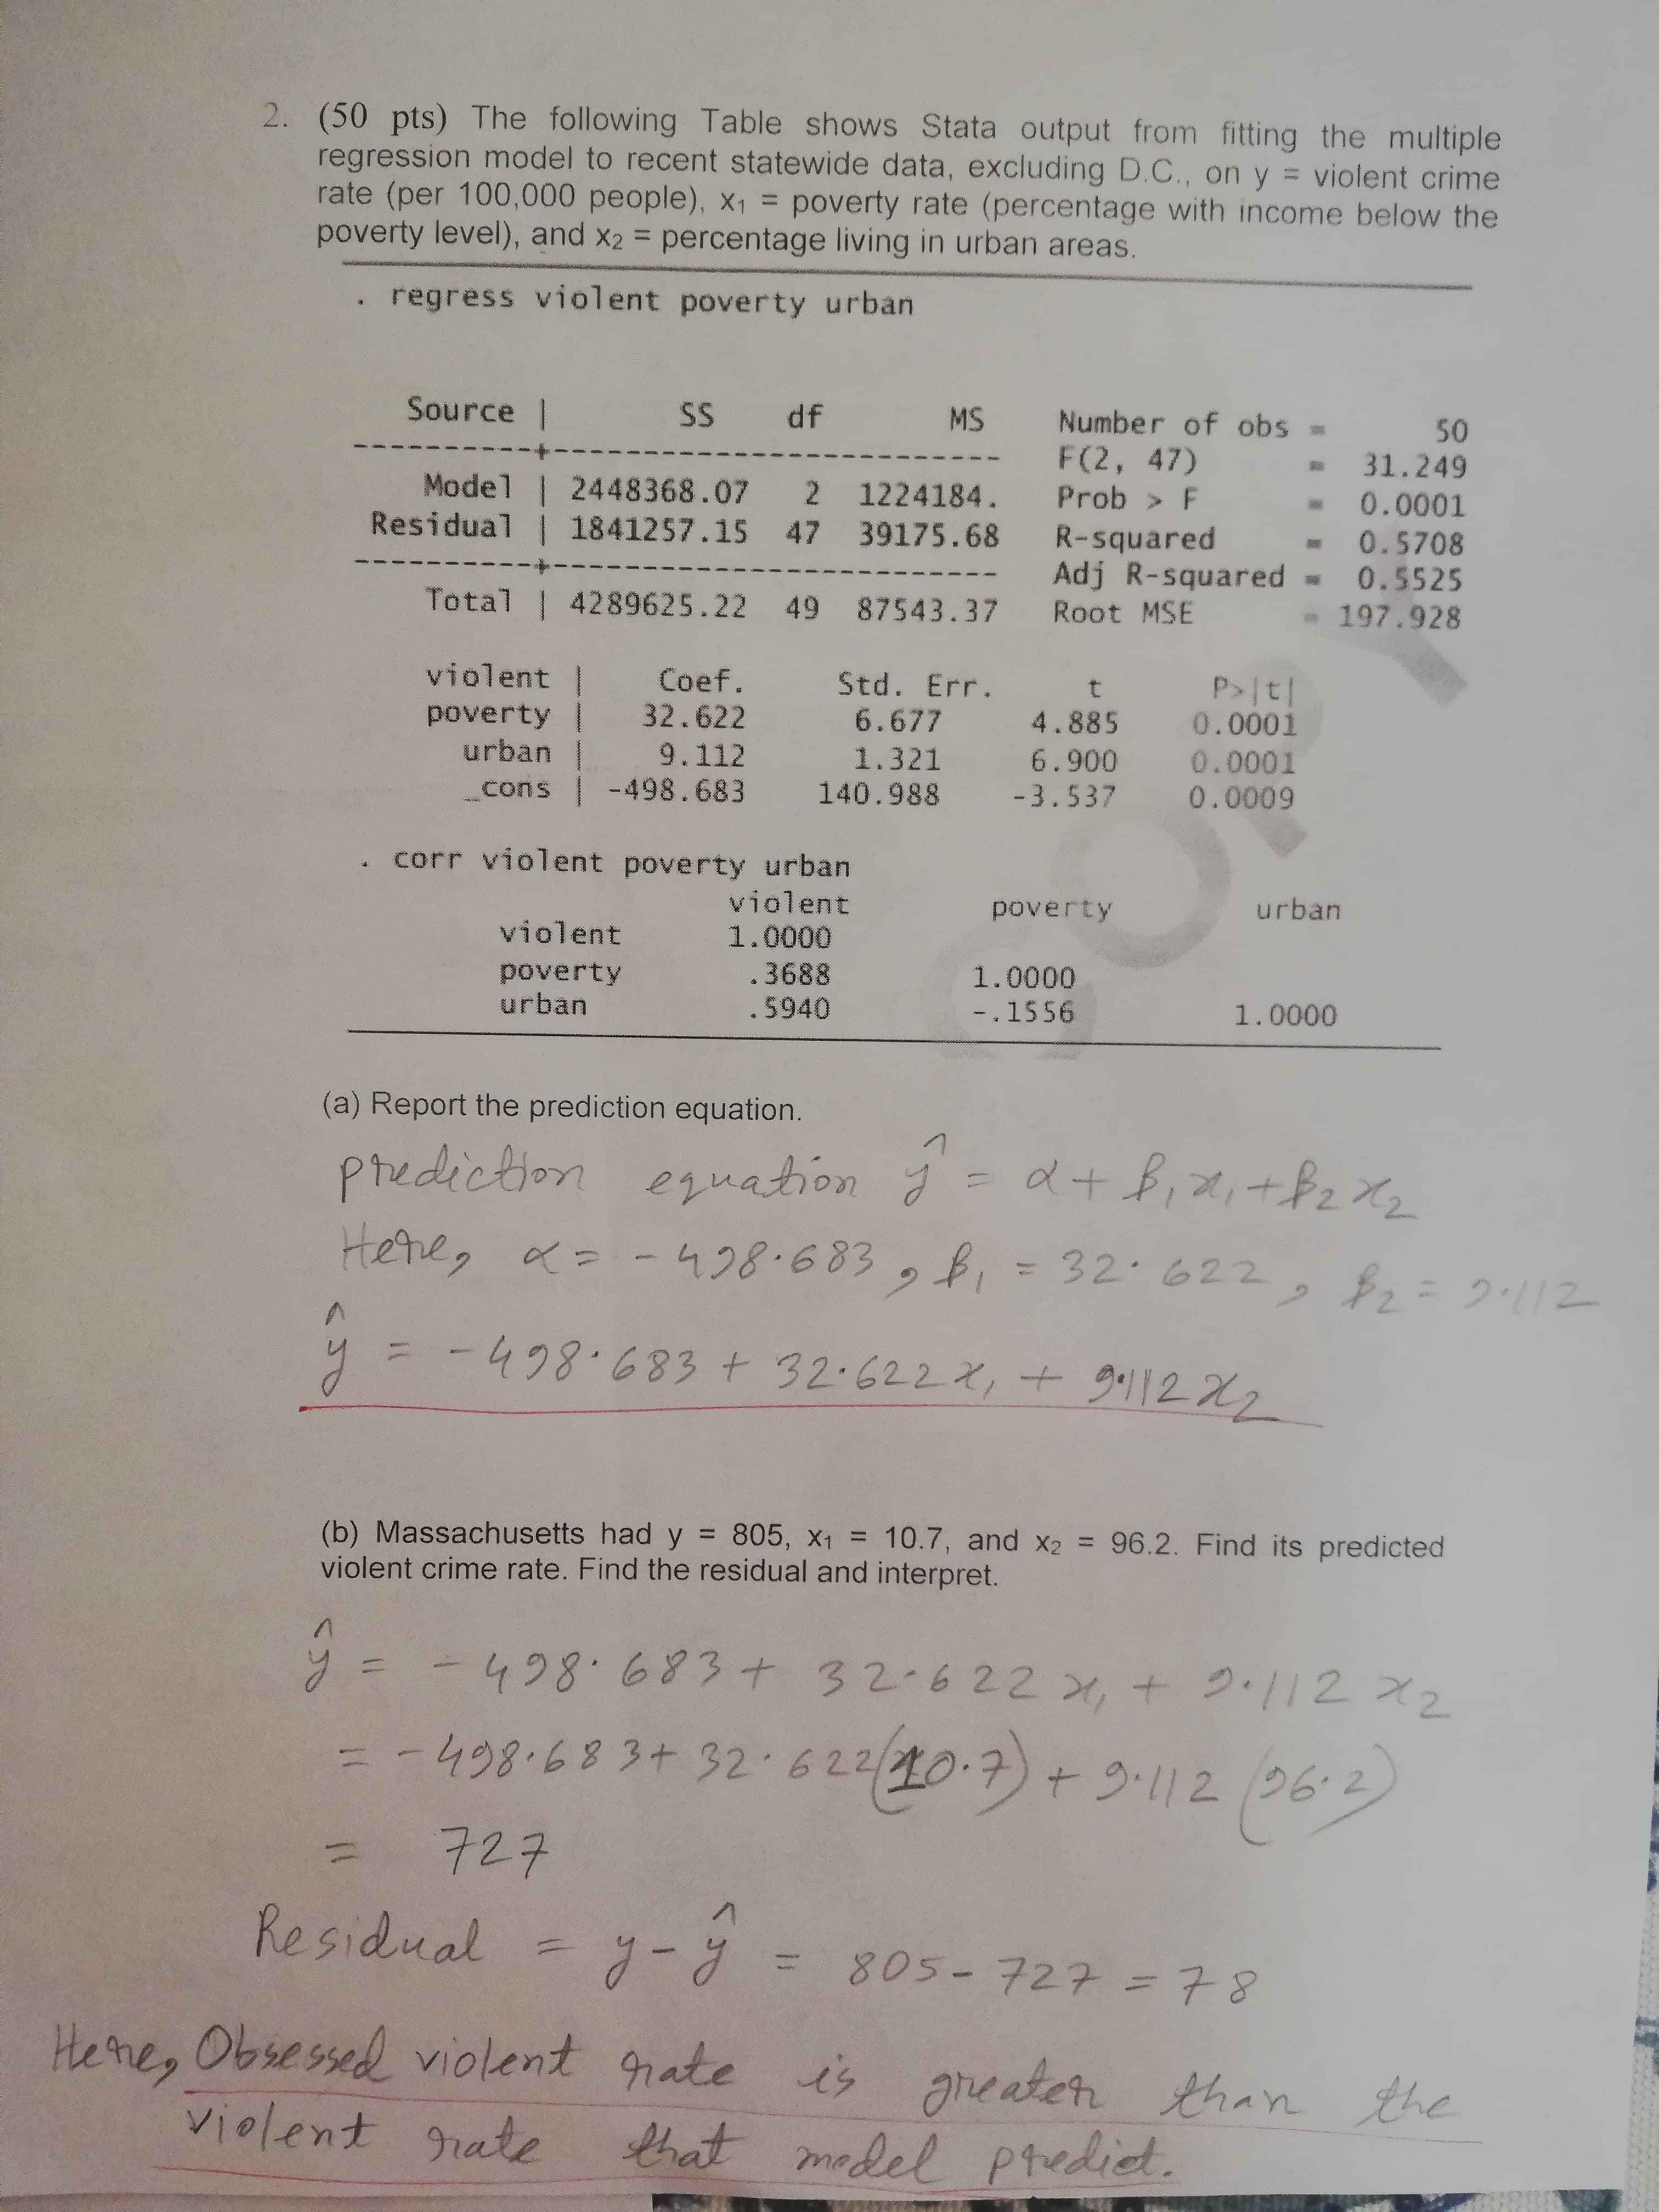 2. (50 pts) The following Table shows Stata output from fitting the multiple
regression model to recent statewide data, excluding D.C., on y = violent crime
rate (per 100,000 people), x₁ = poverty rate (percentage with income below the
poverty level), and x₂ = percentage living in urban areas.
. regress violent poverty urban
Source | SS df MS Number of obs = 50
----------+------------------------ F(2, 47) = 31.249
Model | 2448368.07 2 1224184. Prob > F = 0.0001
Residual | 1841257.15 47 39175.68 R-squared = 0.5708
----------+------------------------ Adj R-squared = 0.5525
Total | 4289625.22 49 87543.37 Root MSE = 197.928
violent | Coef. Std. Err. t P>|t|
poverty | 32.622 6.677 4.885 0.0001
urban | 9.112 1.321 6.900 0.0001
_cons | -498.683 140.988 -3.537 0.0009
. corr violent poverty urban
violent poverty urban
violent 1.0000
poverty .3688 1.0000
urban .5940 -.1556 1.0000
COPY
(a) Report the prediction equation.
prediction equation ŷ = α + β₁x₁ + β₂x₂
Here, α = -498.683, β₁ = 32.622, β₂ = 9.112
ŷ = -498.683 + 32.622x₁ + 9.112x₂
(b) Massachusetts had y = 805, x₁ = 10.7, and x₂ = 96.2. Find its predicted
violent crime rate. Find the residual and interpret.
ŷ = -498.683 + 32.622x₁ + 9.112x₂
= -498.683 + 32.622(10.7) + 9.112(96.2)
= 727
Residual = y - ŷ = 805 - 727 = 78
Here, Obsessed violent rate is greater than the
violent rate that model predict.